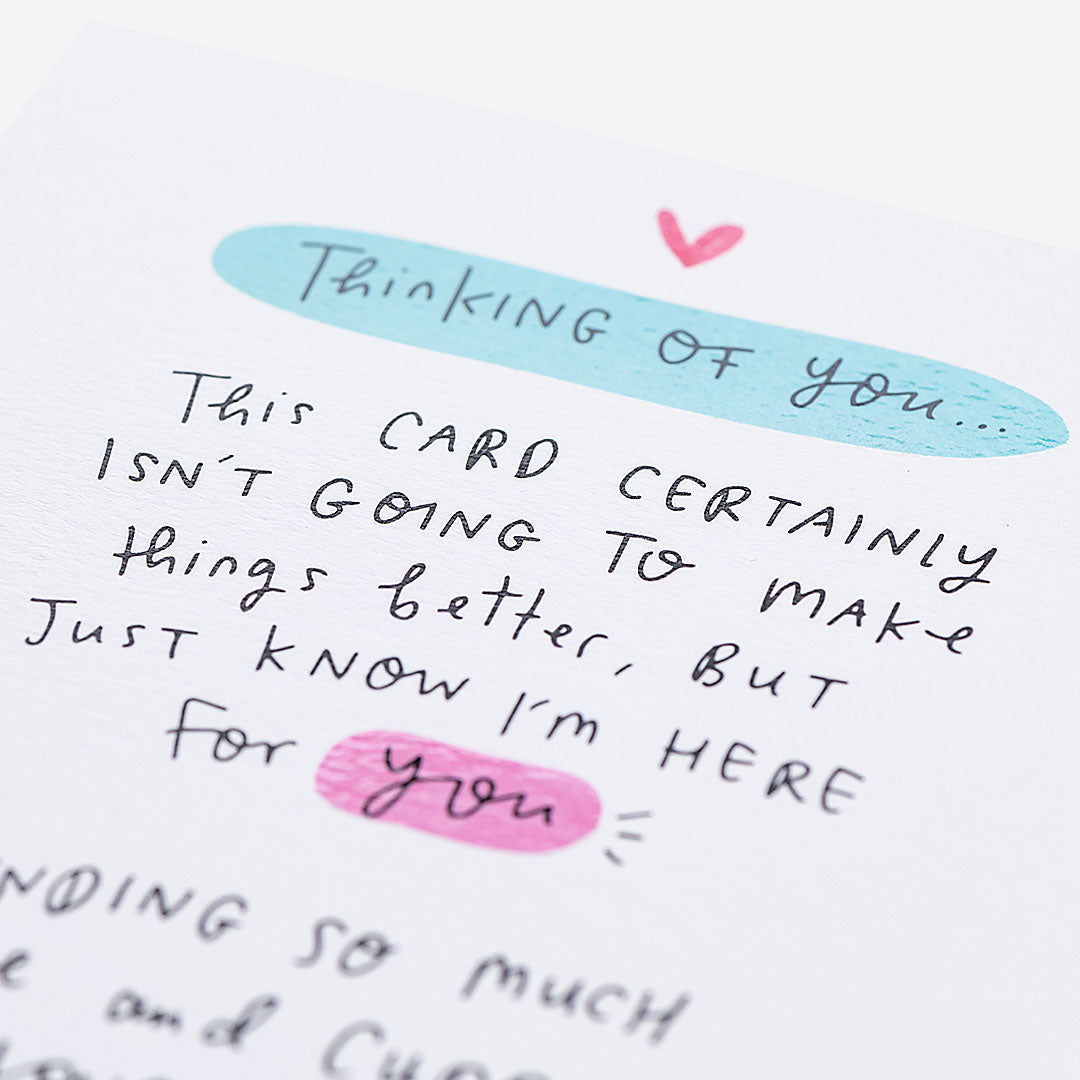 Thinking of you...
This CARD CERTAINLY
ISN'T GOING TO MAKE
things better, BUT
JUST KNOW I'm HERE
For you
SO MUCH
and